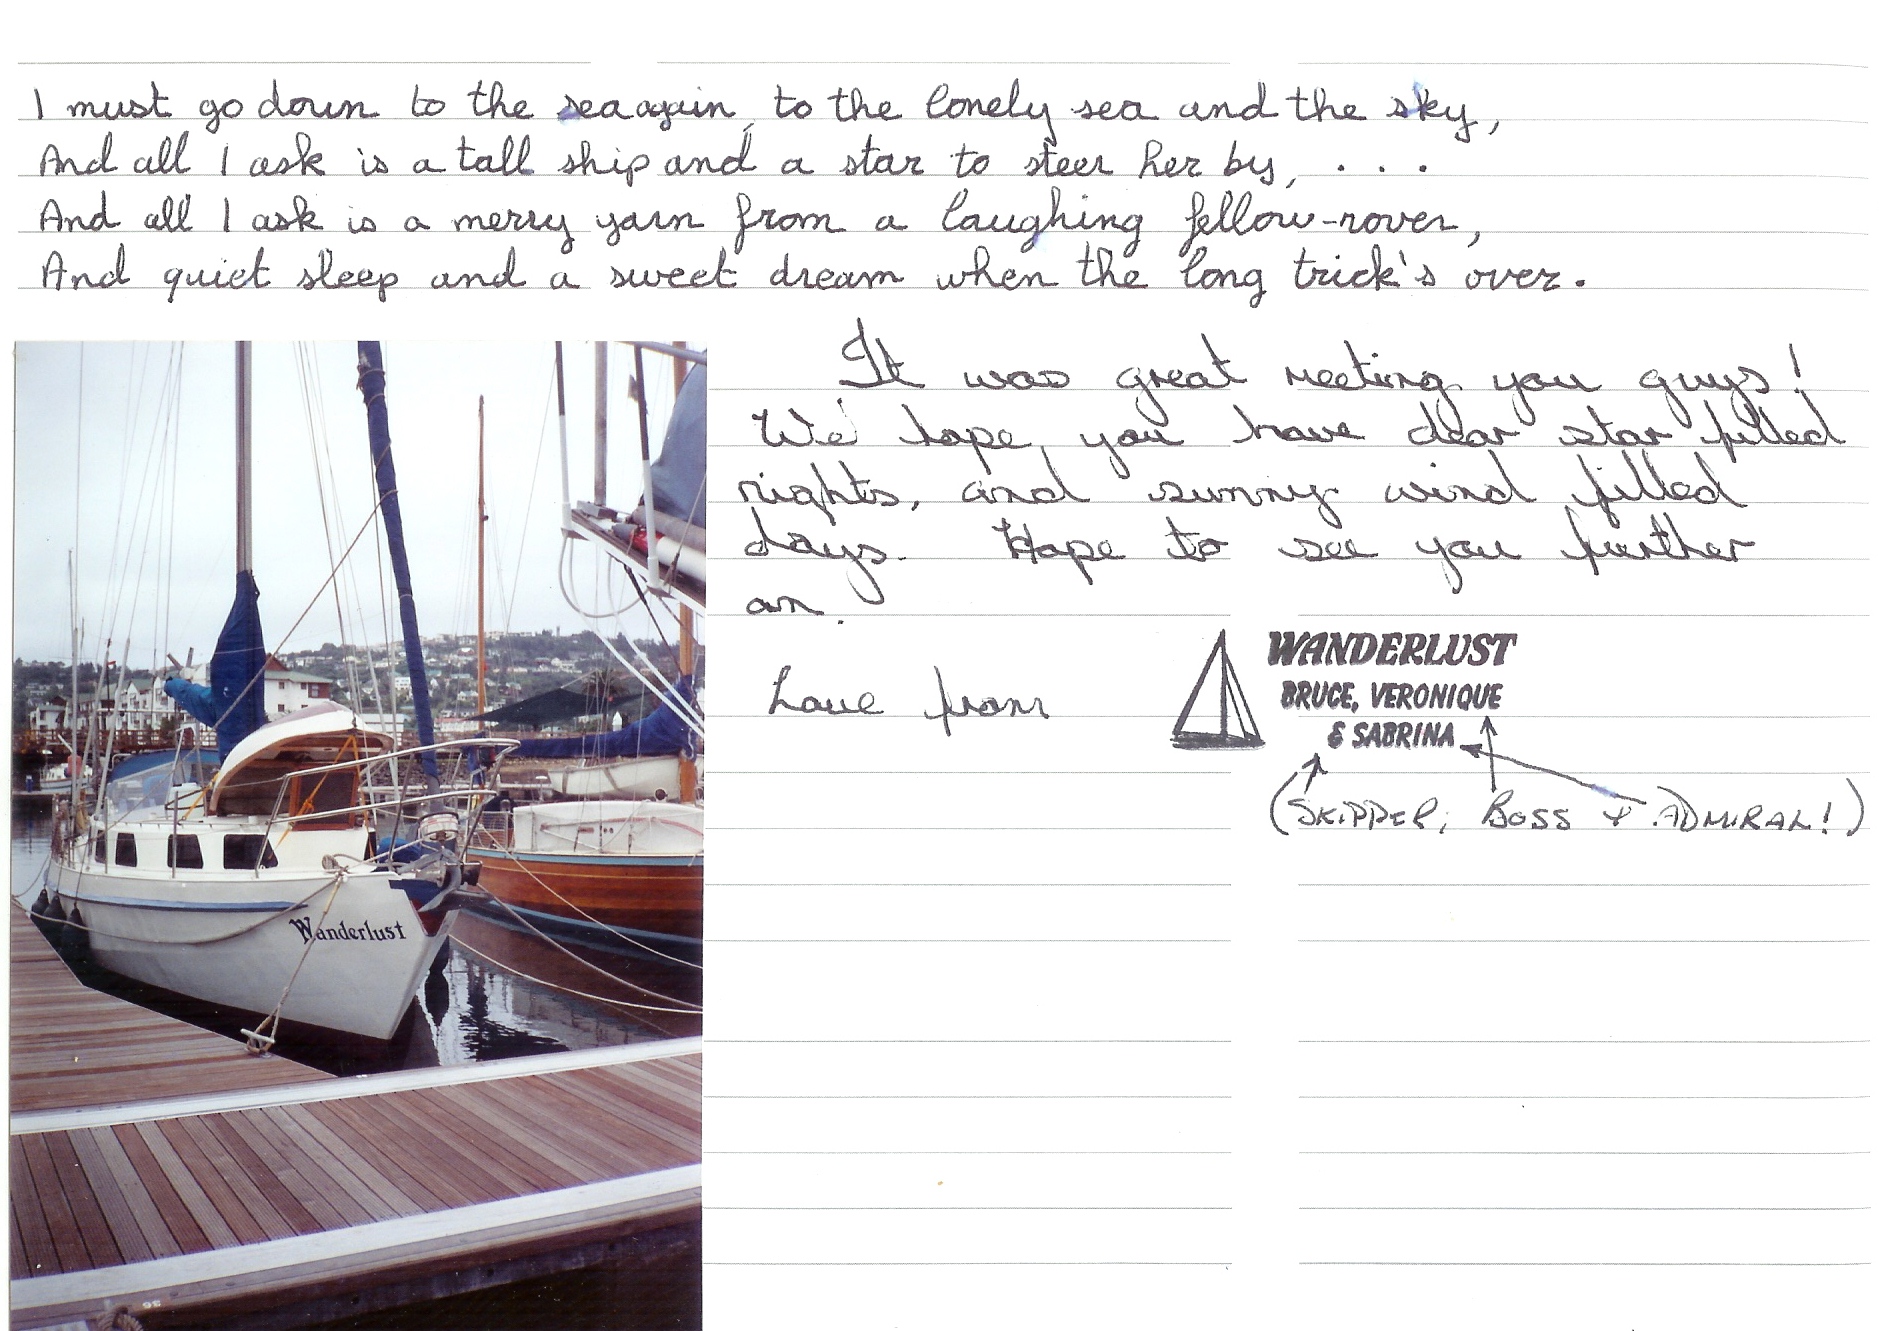 I must go down to the sea again, to the lonely sea and the sky,
And all I ask is a tall ship and a star to steer her by, . . .
And all I ask is a merry yarn from a laughing fellow-rover,
And quiet sleep and a sweet dream when the long trick's over.
It was great meeting you guys!
We hope you have clear star filled
nights, and sunny wind filled
days. Hope to see you further
on.
Love from
WANDERLUST
BRUCE, VERONIQUE
& SABRINA
(SKIPPER, BOSS + ADMIRAL!)
Wanderlust
36